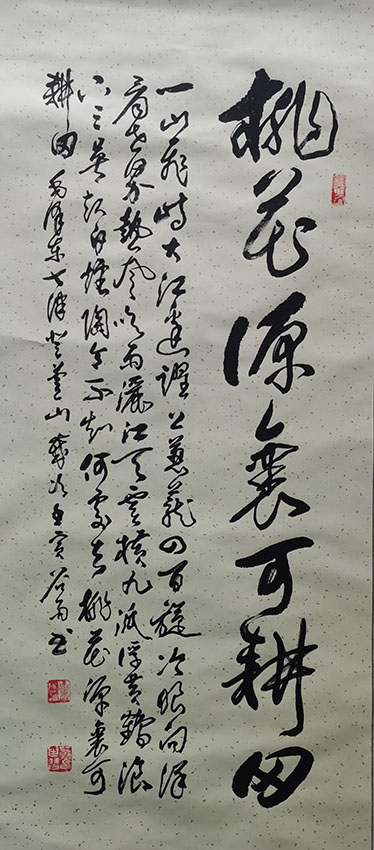 桃花源裏可耕田
一山飛峙大江邊躍上蔥蘢四百旋冷眼向洋
看世界熱風吹雨灑江天雲橫九派浮黃鶴浪
下三吳起白煙陶令不知何處去桃花源裏可
耕田 毛澤東七律登廬山 歲次壬寅谷雨书